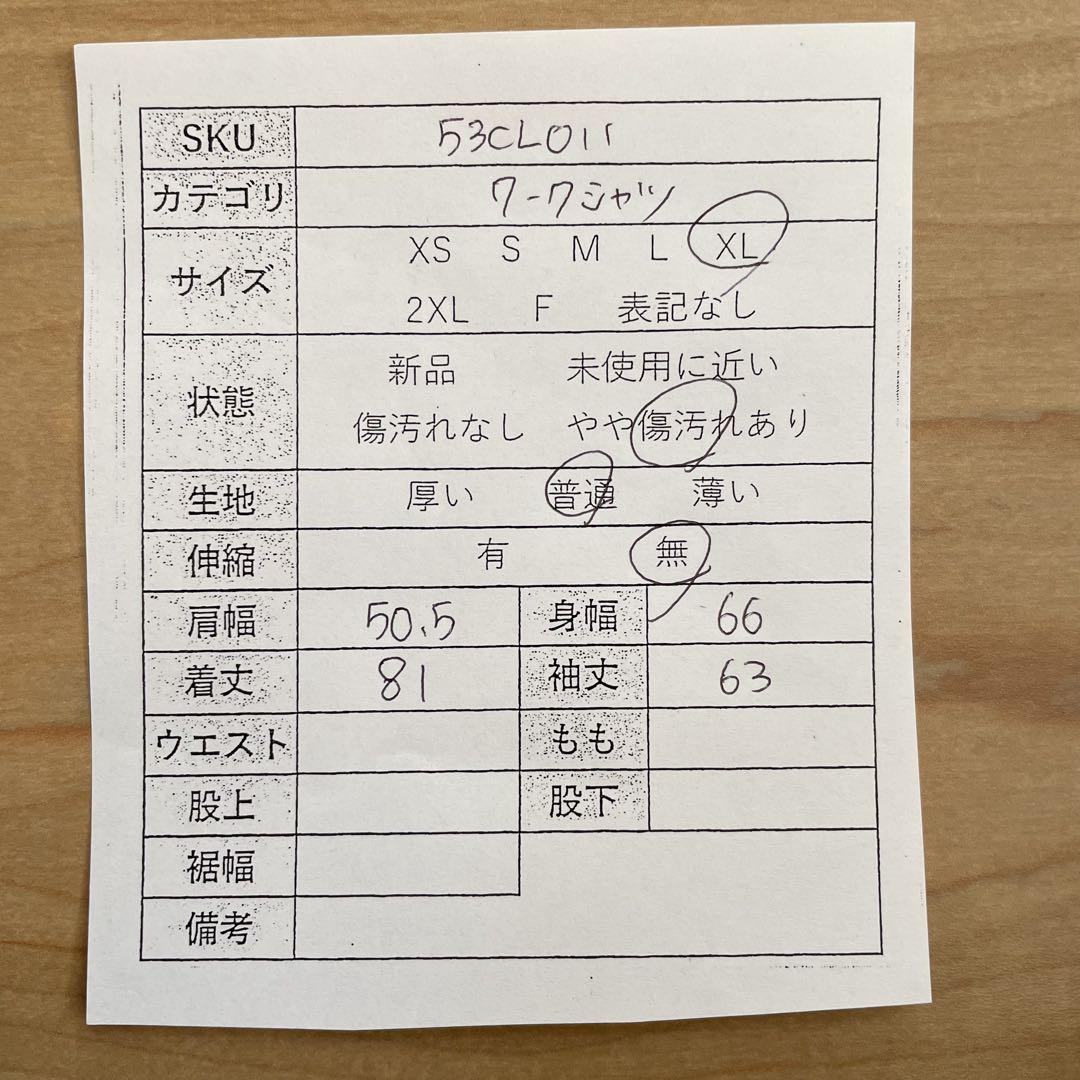 SKU 53CL011
カテゴリ ワークシャツ
サイズ XS S M L XL
2XL F 表記なし
状態 新品 未使用に近い
傷汚れなし やや傷汚れあり
生地 厚い 普通 薄い
伸縮 有 無
肩幅 50.5 身幅 66
着丈 81 袖丈 63
ウエスト もも
股上 股下
裾幅
備考